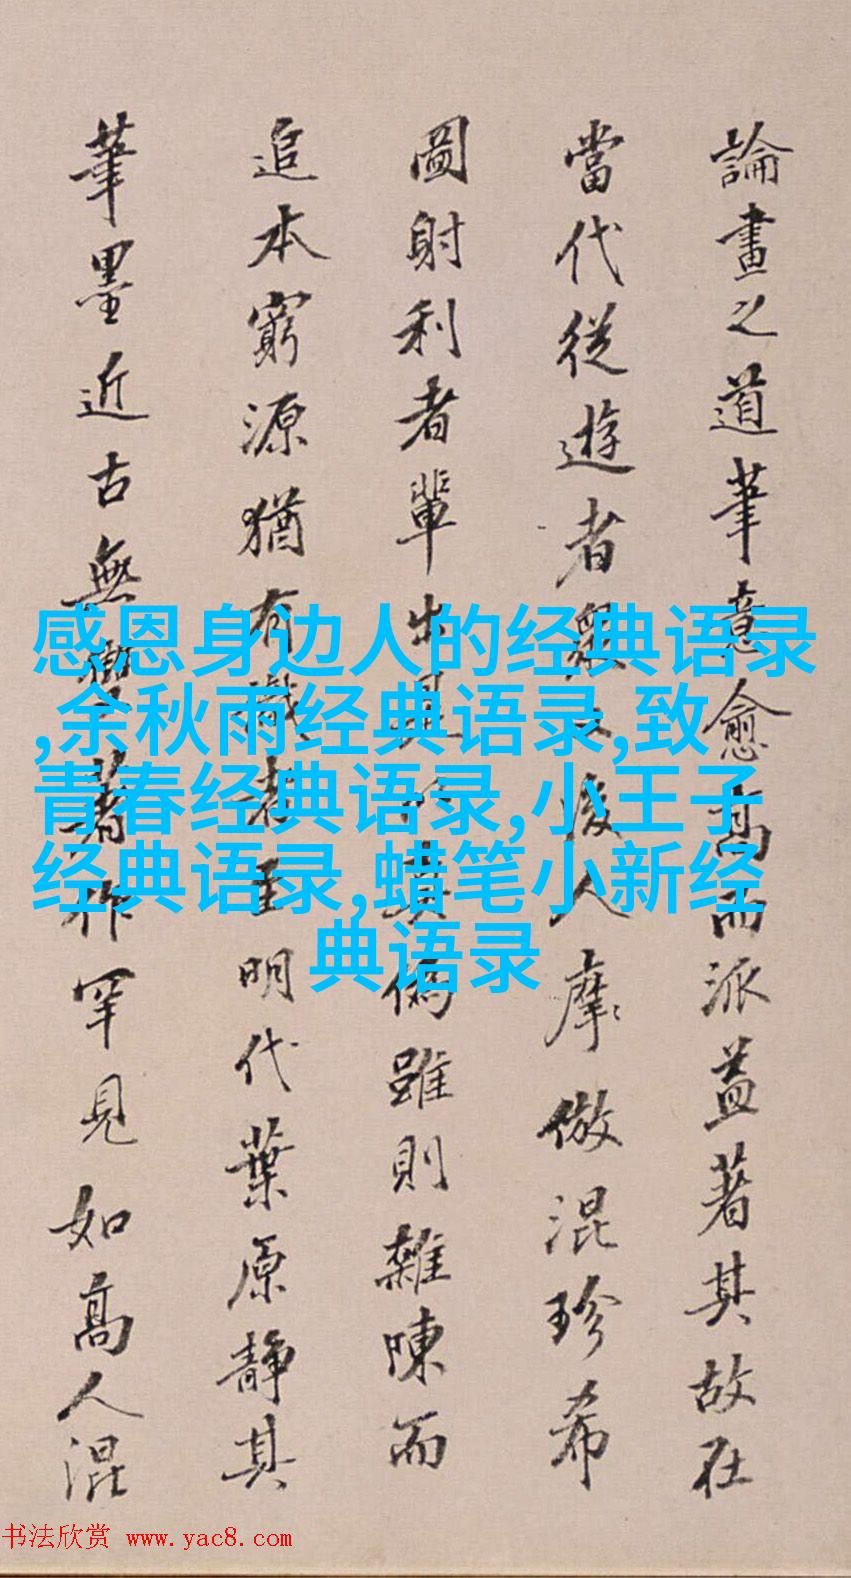 論畫之道筆意愈高而派益著其故在
當代從遊者衆人後人摩倣混珍希
圖射利者輩出其真偽雖則雜陳而
追本窮源猶有識者至明代葉原靜其
筆墨近古無與著作罕見如高人混
感恩身边人的经典语录
,余秋雨经典语录,致
青春经典语录,小王子
经典语录,蜡笔小新经
典语录
书法欣赏 www.yac8.com